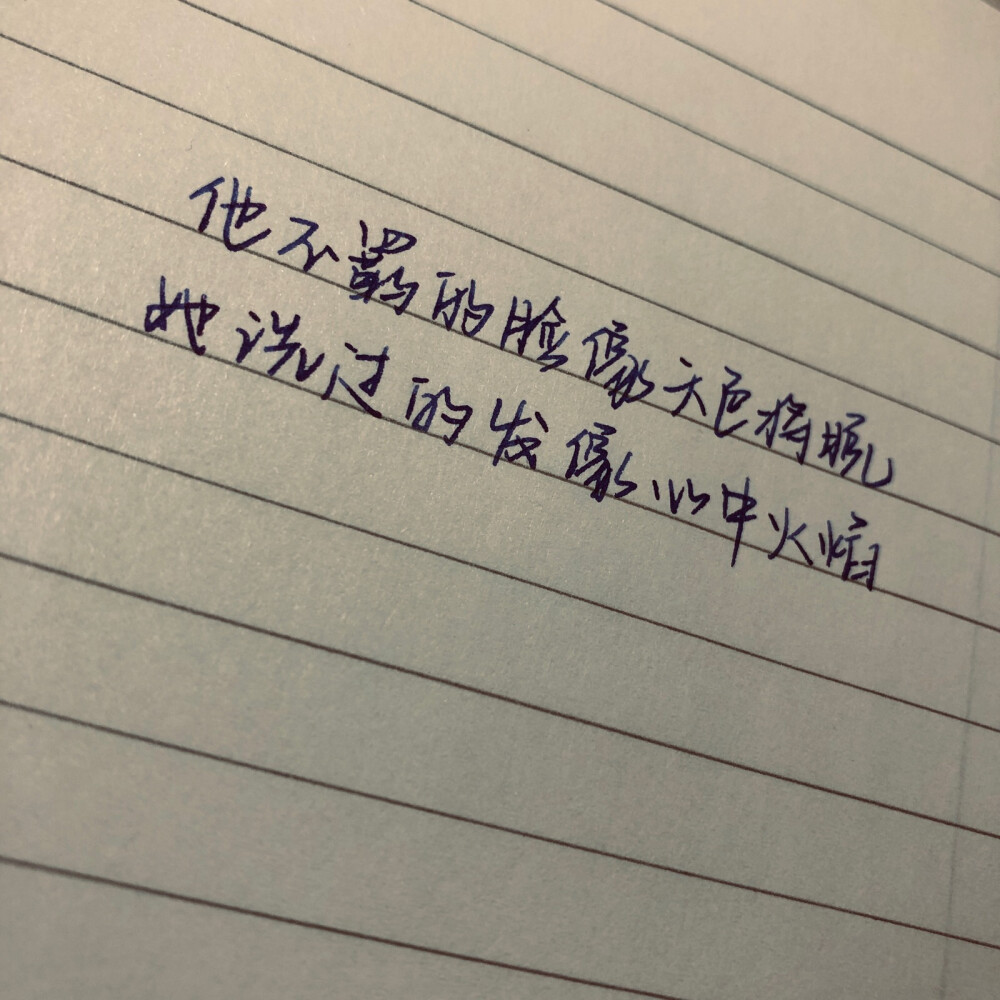 他不羁的脸像天色将晚
她洗过的发像心中火焰